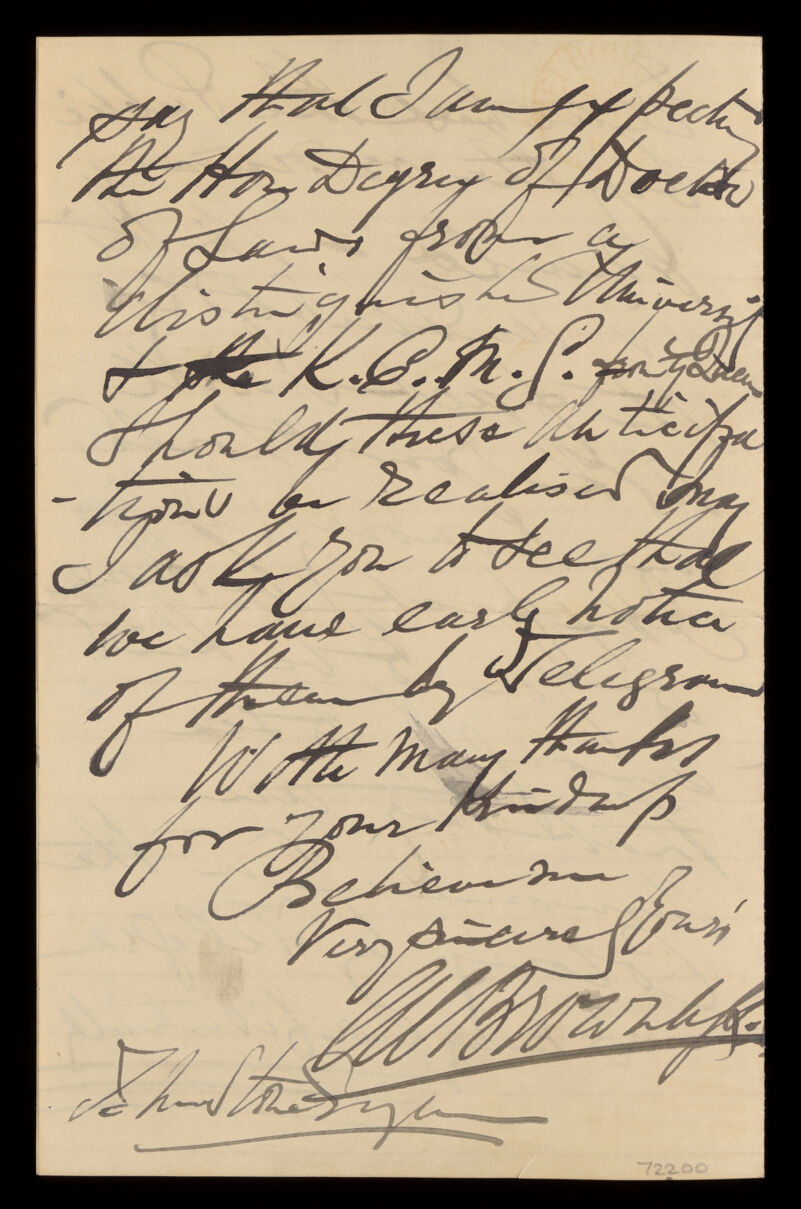 say that I am expecting
the Hon Degree of Doctor
of Laws from a
distinguished University
& the K.C.M.G. from ye Queen
Should these anticipa
-tions be realised may
I ask you to see that
we have early notice
of them by Telegram
With many thanks
for your kindness
Believe me
Very sincerely yours
W Brownlyffe.
72200